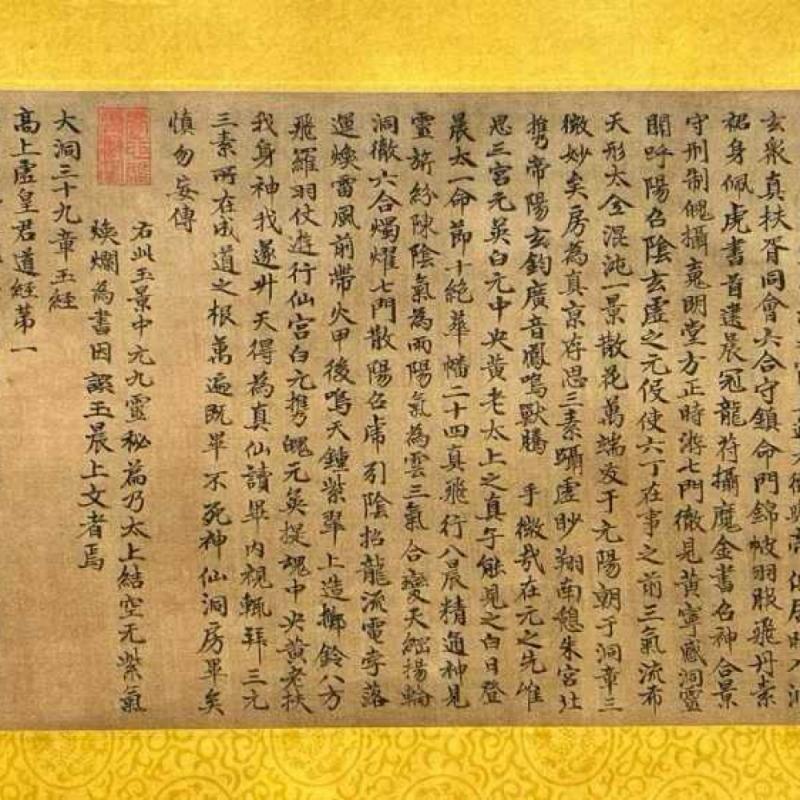 玄衆真扶胥同會六合守鎮命門錦帔羽服飛丹素
裙身佩虎書首建晨冠龍符攝魔金書召神合景
守刑制魄攝䰟明堂方正時游七門徹見黃寧感洞靈
開呼陽召陰玄虛之元促使六丁在事之前三氣流布
天形太全混沌一景散花萬端发于元陽朝于洞章三
微妙矣房為真京存思三素躡虛眇翔南憩朱宮北
携帝陽玄鈞廣音鳳鳴獸騰 乎微哉在元之先惟
思三宮元英白元中央黃老太上之真乎能見之白日登
晨太一命節十絕華幡二十四真飛行八晨精通神見
靈旂紛陳陰氣為雨陽氣為雲三氣合變天綱揚輪
洞徹六合燭耀七門散陽召虎引陰招龍流電奔落
運煥雷風前帶火甲後鳴天鍾紫翠上造擲鈴八方
飛羅羽仗遊行仙宮白元携魄元英捉魂中央黃老扶
我身神我遂昇天得為真仙讀畢內視輒拜三元
三素所在成道之根萬遍既畢不死神仙洞房畢矣
慎勿妄傳
右此玉景中元九靈秘篇乃太上結空无紫氣
煥爛為書因誤玉晨上文者焉
大洞三十九章玉經
高上虛皇君道經苐一